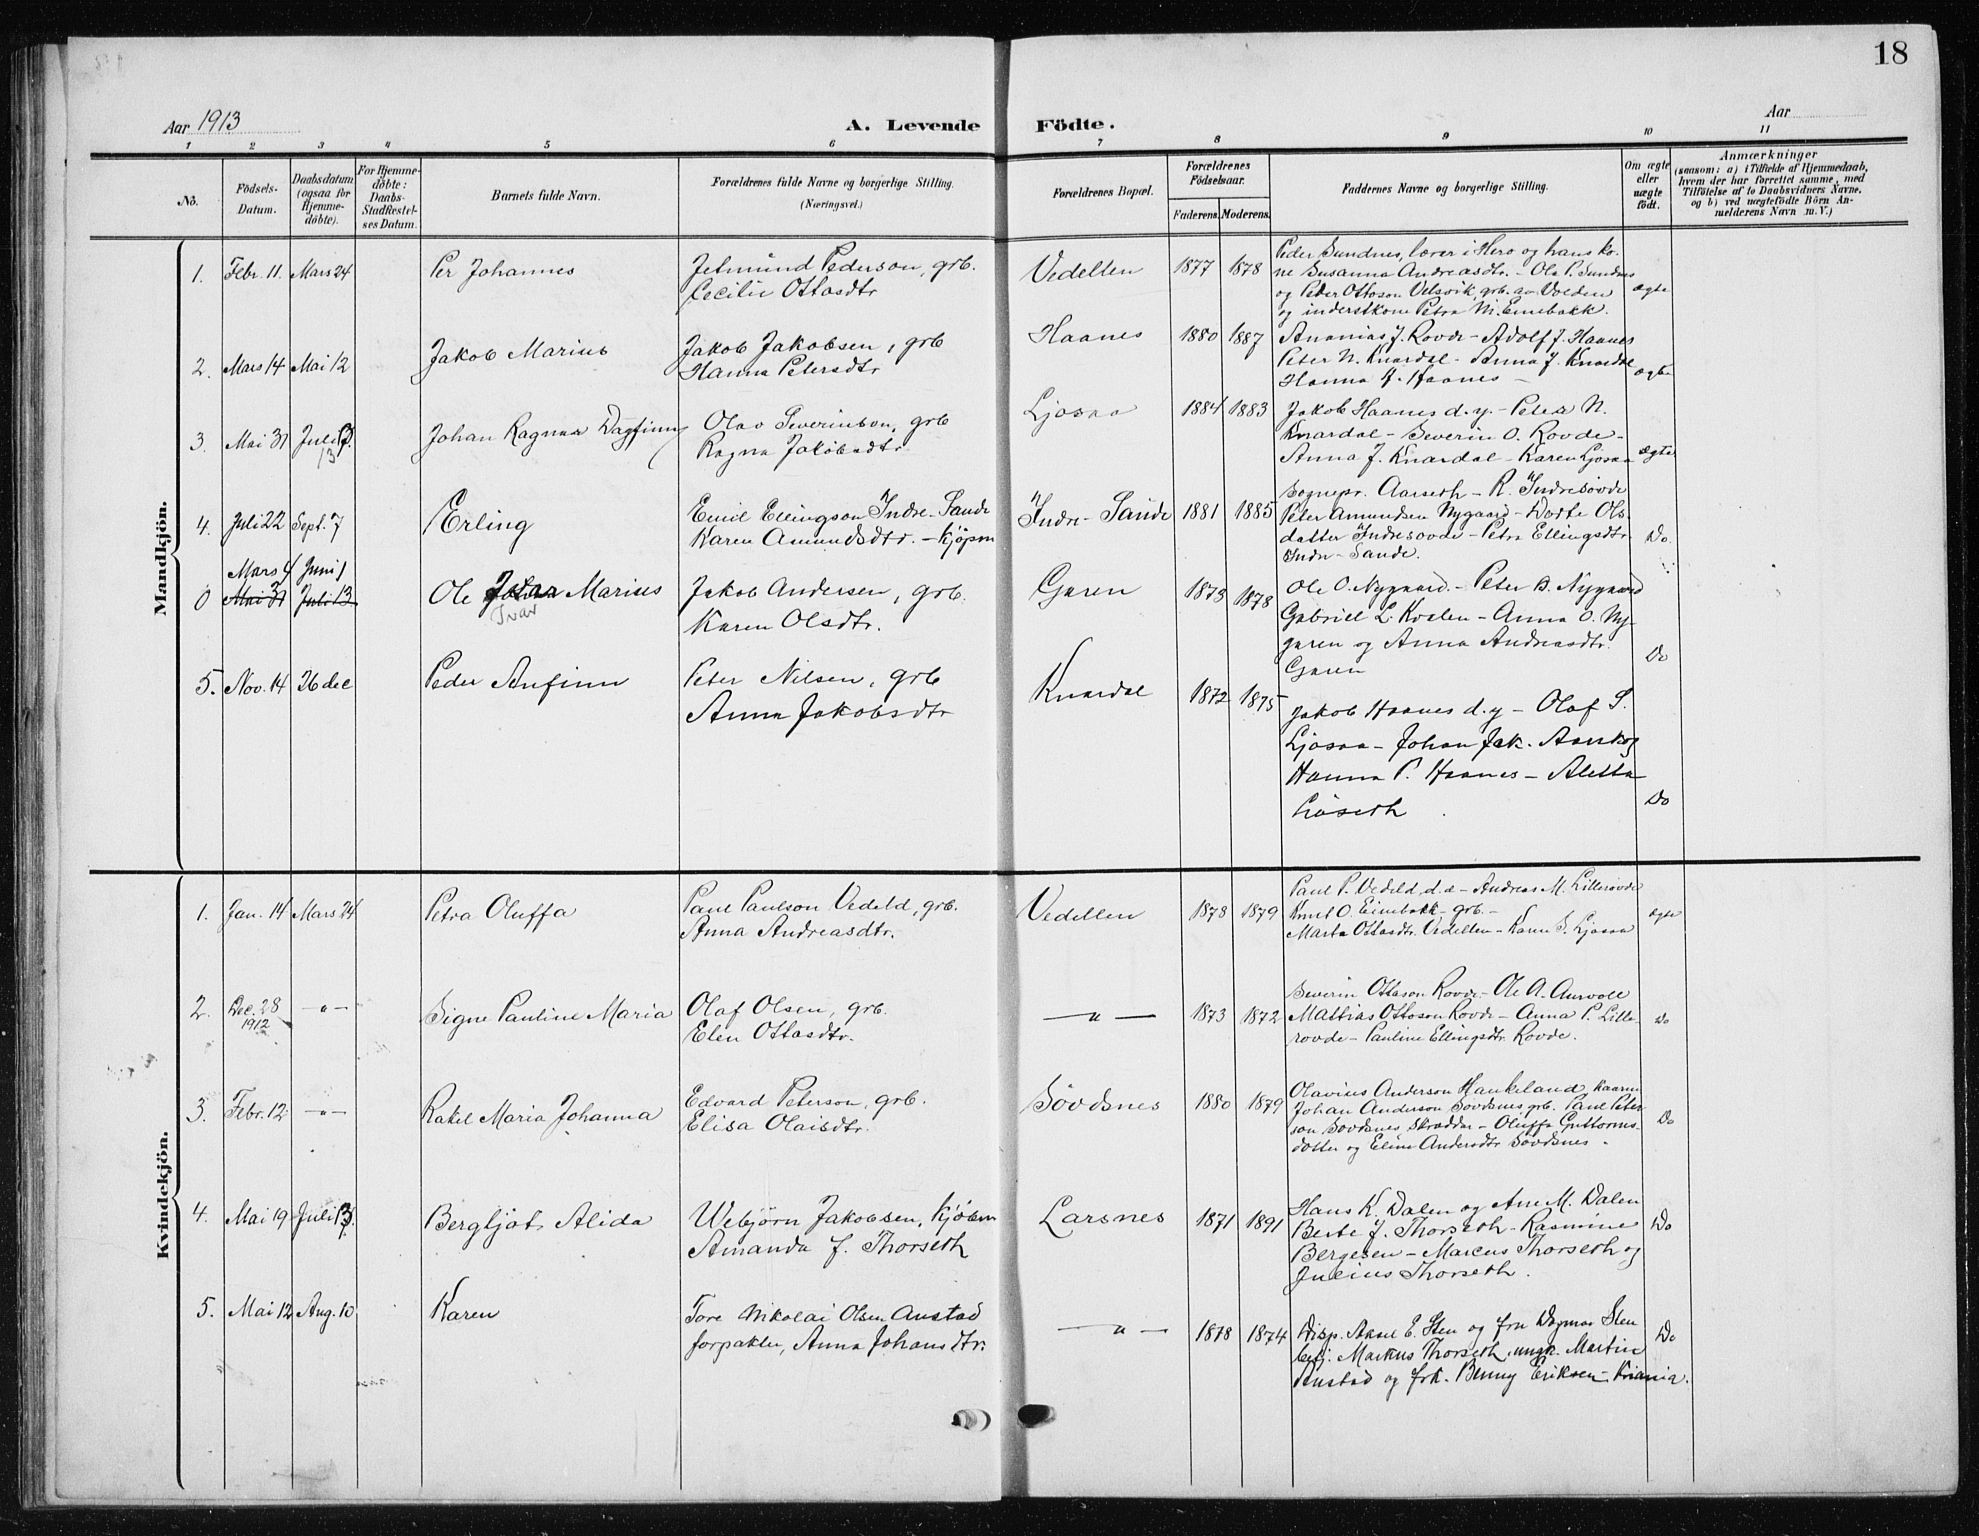 18
Aar 1913
A. Levende Födte.
Aar
1 2 3 4 5 6 7 8 9 10 11
No.
Födsels-Datum.
Daabsdatum (ogsaa for Hjemme-döbte).
For Hjemme-döbte: Daabs-Stadfæstel-ses Datum.
Barnets fulde Navn.
Forældrenes fulde Navne og borgerlige Stilling. (Næringsvei.)
Forældrenes Bopæl.
Forældrenes Födselsaar.
Faderens. Moderens.
Faddernes Navne og borgerlige Stilling.
Om ægte eller uægte födt.
Anmærkninger
(saasom: a) i Tilfælde af Hjemmedaab,
hvem der har forrettet samme, med
Tilföielse af to Daabsvidners Navne.
og b) ved uægtefödte Börn An-
melderens Navn m.V.)
Mandkjön.
1. Febr. 11. Mars 24 Per Johannes
Jetmund Pederson, grb.
Cecilie Ottosdtr
Vedelden 1877 1878
Peder Sundnes, lærer i Herø og hans ko-
ne Susanna Andreasdtr. - Ole P. Sundnes
og Peder Ottoson Velsvik, grb. av Volden
og inderstkone Petra M. Eimebakk.
ægte
2. Mars 14 Mai 12 Jakob Marius
Jakob Jakobsen, grb
Hanna Petersdtr
Haanes 1880 1887
Ananias J. Rovde - Adolf J. Haanes
Peter N. Knardal - Anna J. Knardal
Hanna H. Haanes -
ægte
3. Mai 31 Juli 13 Johan Ragnar Dagfinn
Olav Severinson, grb
Ragna Jakobsdtr
Ljosaa 1884 1883
Jakob Haanes d.y. - Peter N.
Knardal - Severin O. Rovde -
Anna J. Knardal - Karen Ljosaa
ægte
4. Juli 22 Sept. 7 Erling
Emil Ellingson Indre-Sande
Karen Amundsdtr. - Kjøpm
Indre-Sande 1881 1885
Sognepr. Aarseth - R. Indresøvde
Peter Amundsen Nygaard - Dorte Ols-
datter Indresovde - Petra Ellingsdtr
Indre-Sande.
Do.
Mars 4 Juni 1
0 Mai 31 Juli 13 Ole Marius
Ivar
Jakob Andersen, grb.
Karen Olsdtr.
Garen 1873 1878
Ole O. Nygaard. - Peter B. Nygaard
Gabriel L. Kvalen - Anna O. Ny-
garen og Anna Andreasdtr.
Garen
Do
5. Nov. 14 26 dec Peder Anfinn
Peter Nilsen, grb
Anna Jakobsdtr
Knardal 1872 1875
Jakob Haanes d.y - Olaf S.
Ljosaa - Johan Jak. Aarskog
Hanna P. Haanes - Aletta
Liaseth
Do
Kvindekjön.
1. Jan. 14 Mars 24 Petra Oluffa
Paul Paulson Vedeld, grb.
Anna Andreasdtr.
Vedelden 1878 1879
Paul P. Vedeld, d.e - Andreas M. Lillerovde
Knut O. Eimebakk - grb. -
Marta Ottosdtr. Vedelden - Karen S. Ljosaa
ægte
2. Dec. 28 1912 - " - Signe Pauline Maria
Olaf Olsen, grb.
Elen Ottosdtr.
- " - 1873 1872
Severin Ottoson Rovde - Ole A. Aurvoll
Mattias Ottoson Rovde - Anna P. Lille-
rovde - Pauline Ellingsdtr. Rovde.
Do
3. Febr. 12 - " - Rakel Maria Johanna
Edvard Peterson, grb.
Elisa Olaisdtr.
Søvdsnes 1880 1879
Olavius Anderson Haukeland, kaarm
Johan Anderson Søvdsnes, grb. Paul Peter-
son Søvdsnes Skrædder - Oluffa Guttorms-
dotter og Eline Andersdtr Søvdsnes -
Do
4. Mai 19 Juli 13 Bergljot Alida
Webjørn Jakobsen, Kjøbm
Amanda J. Thorseth
Larsnes 1871 1891
Hans K. Dalen og Ane M. Dalen
Berte J. Thorseth - Rasmine
Bergesen - Marcus Thorseth og
Julius Thorseth.
Do
5. Mai 12 Aug. 10 Karen
Tore Nikolai Olsen Anstad
forpakter, Anna Johansdtr.
- " - 1878 1874
Disp. Aksel E. Sten og fru Dagmar Sten
betj. Markus Thorseth, ungk. Martin
Anstad og frk. Benny Eriksen - Kriania.
Do